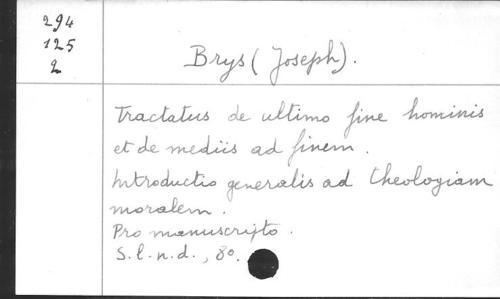 294
125
2
Brys (Joseph).
Tractatus de ultimo fine hominis
et de mediis ad finem.
Introductio generalis ad theologiam
moralem.
Pro manuscripto.
S.l.n.d., 8o.